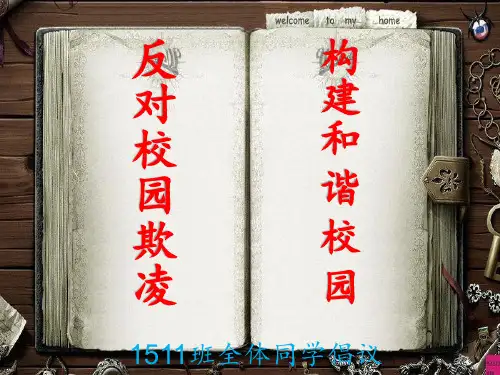 welcome to my home
反对校园欺凌
构建和谐校园
1511班全体同学倡议